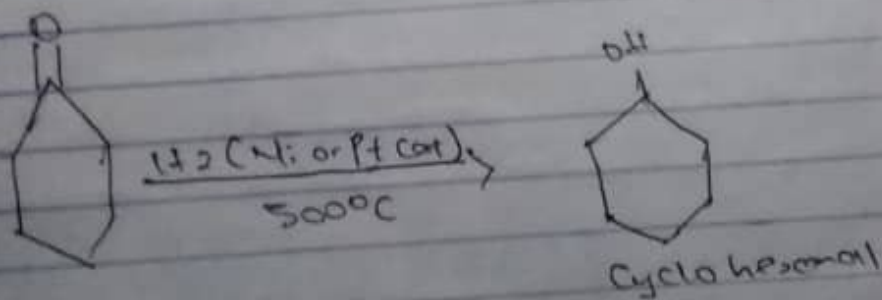 O
OH
H2 (Ni or Pt cat).
500°C
Cyclohexanol